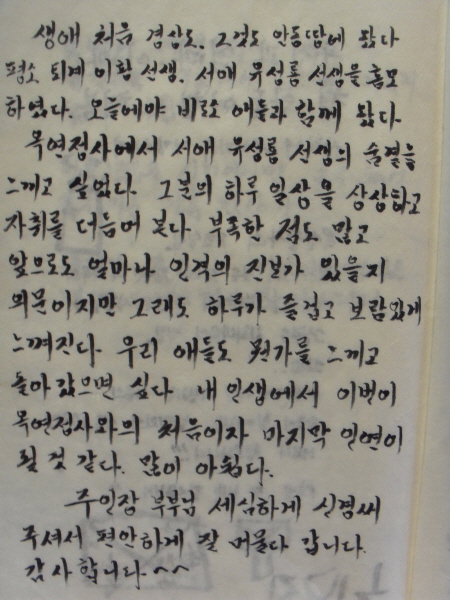 생애 처음 경상도. 그것도 안동땅에 왔다
평소 퇴계 이황 선생. 서애 유성룡 선생을 흠모
하였다. 오늘에야 비로소 애들과 함께 왔다.
옥연정사에서 서애 유성룡 선생의 숨결을
느끼고 싶었다. 그분의 하루 일상을 상상하고
자취를 더듬어 본다 부족한 점도 많고
앞으로도 얼마나 인격의 진보가 있을지
의문이지만 그래도 하루가 즐겁고 보람있게
느껴진다. 우리 애들도 뭔가를 느끼고
돌아갔으면 싶다 내 인생에서 이번이
옥연정사와의 처음이자 마지막 인연이
될 것 같다. 많이 아쉽다.
주인장 부부님 세심하게 신경써
주셔서 편안하게 잘 머물다 갑니다.
감사합니다~~